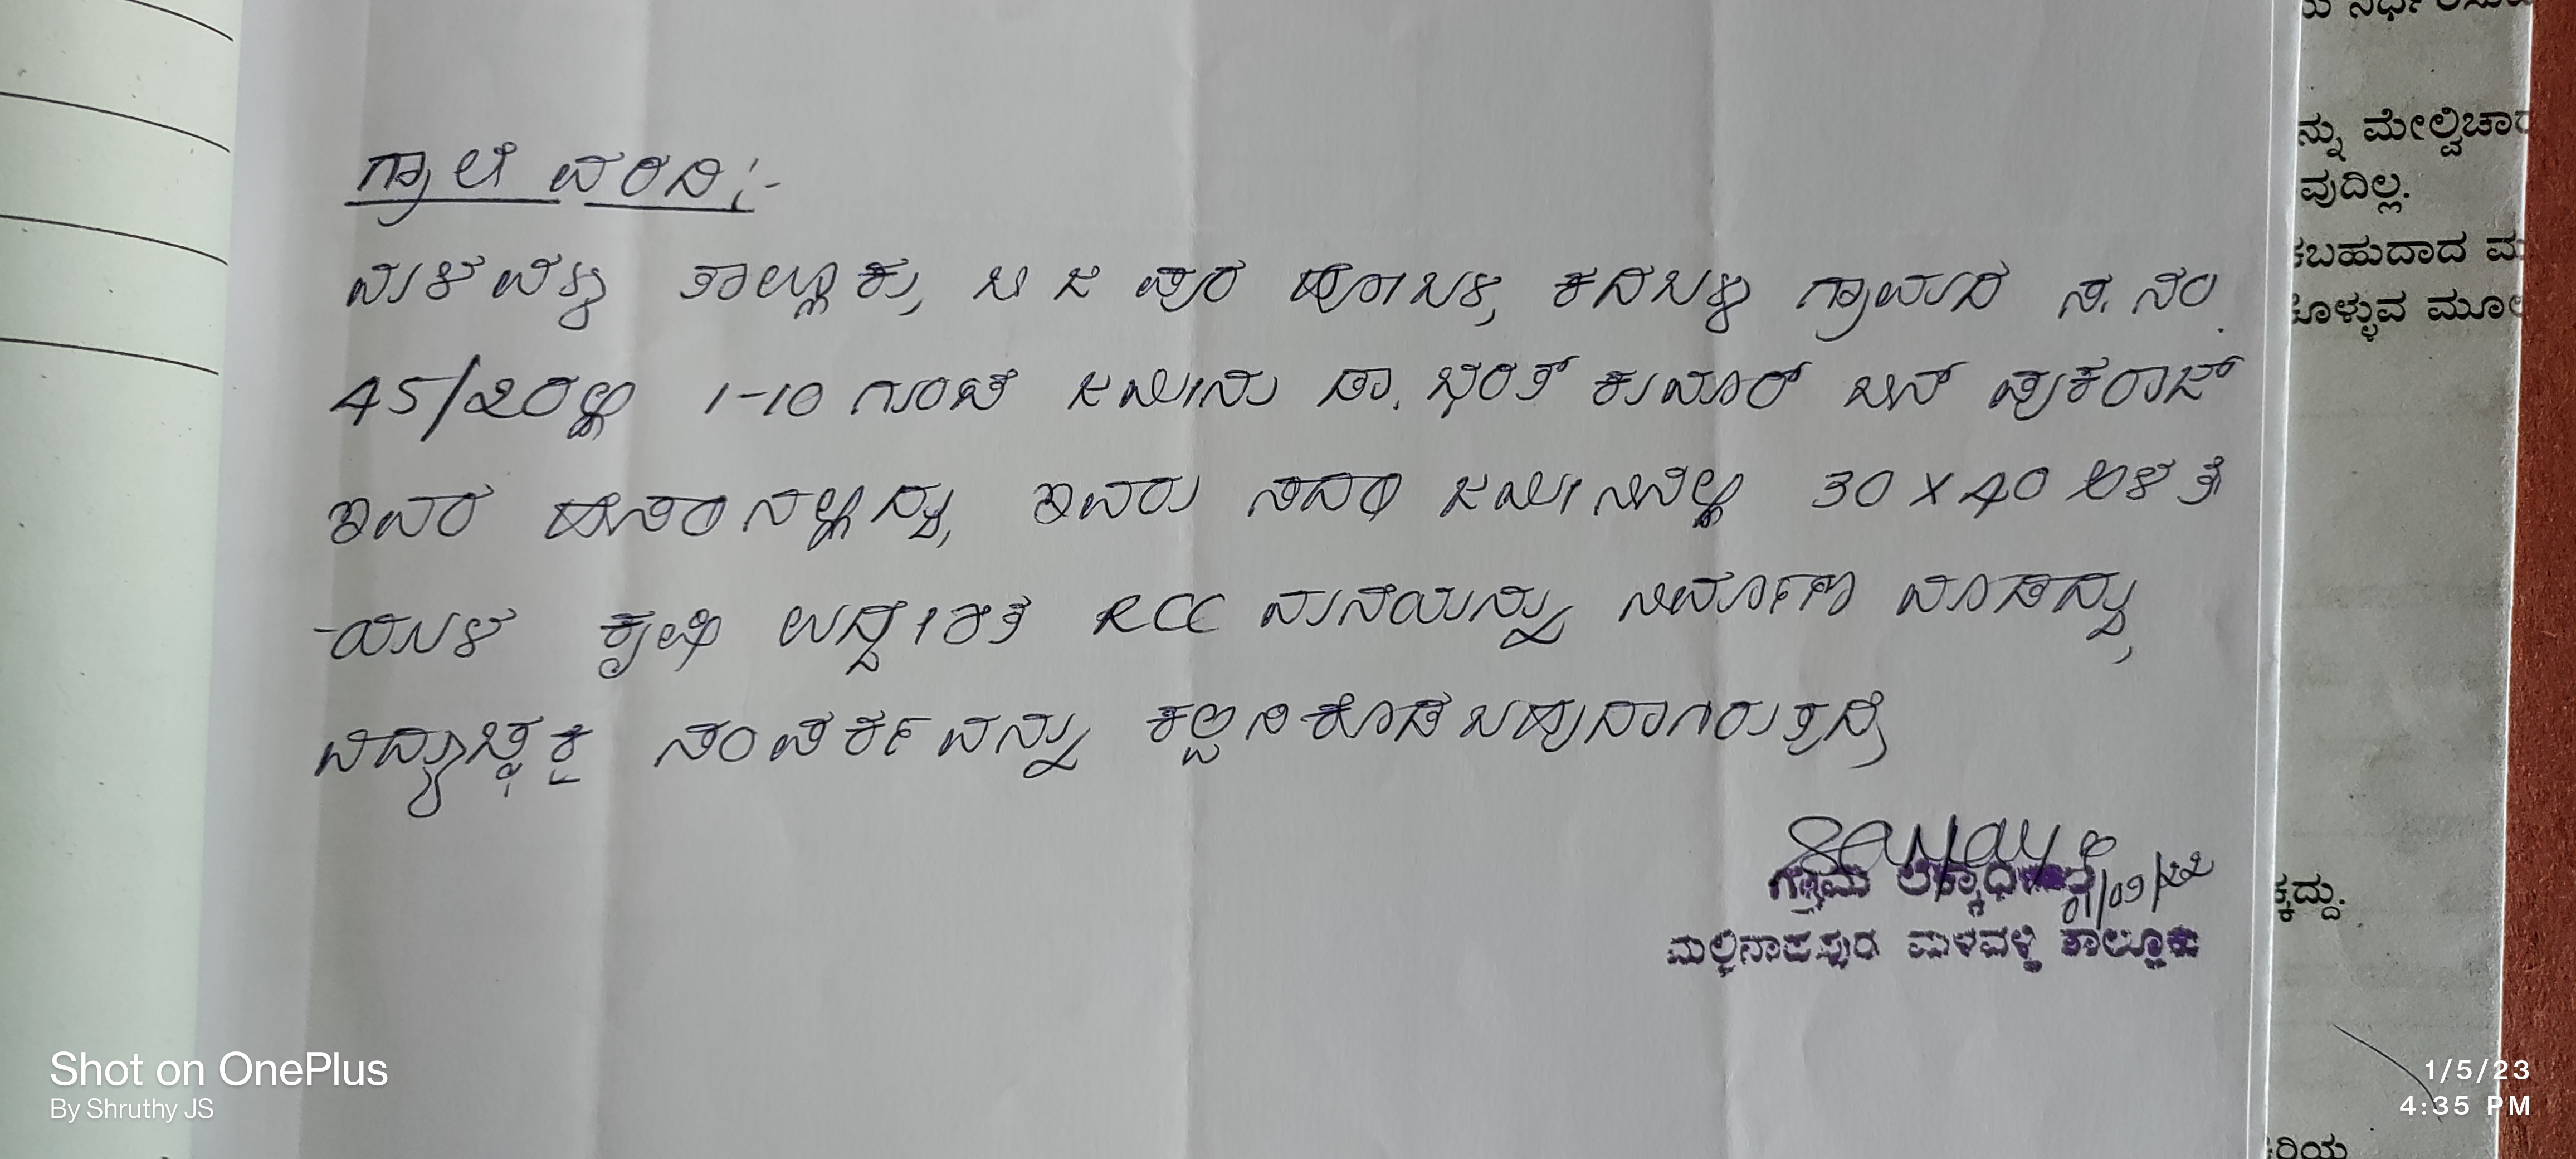 ಗ್ರಾಲೆ ವರದಿ:-
ಮಳವಳ್ಳಿ ತಾಲ್ಲೂಕು, ಬಿ ಜಿ ಪುರ ಹೋಬಳಿ, ಕದಬಳ್ಳಿ ಗ್ರಾಮದ ಸ. ನಂ.
45/2ರಲ್ಲಿ 1-10 ಗುಂಟೆ ಜಮೀನು ಡಾ. ಭರತ್ ಕುಮಾರ್ ಬಿನ್ ಪುಕರಾಜ್
ಇವರ ಹೆಸರಿನಲ್ಲಿದ್ದು, ಇವರು ಸದರಿ ಜಮೀನಿನಲ್ಲಿ 30 X 40 ಅಳತೆ
-ಯಲ್ಲಿ ಕೃಷಿ ಉದ್ದೇಶಿತ RCC ಮನೆಯನ್ನು ನಿರ್ಮಾಣ ಮಾಡಿದ್ದು,
ವಿದ್ಯುಚ್ಛಕ್ತಿ ಸಂಪರ್ಕವನ್ನು ಕಲ್ಪಿಸಿಕೊಡಬಹುದಾಗಿರುತ್ತದೆ
Sanjay
ಗ್ರಾಮ ಲೆಕ್ಕಾಧಿಕಾರಿ
01/09/22
ಮಲ್ಲಿನಾಥಪುರ ಮಳವಳ್ಳಿ ತಾಲ್ಲೂಕು
ನ್ನು ಮೇಲ್ವಿಚಾರ
ವುದಿಲ್ಲ.
ಕಬಹುದಾದ ಮ
ಕೊಳ್ಳುವ ಮೂಲ
ಕ್ಕದ್ದು.
ಕಿರಿಯ
Shot on OnePlus
By Shruthy JS
1/5/23
4:35 PM